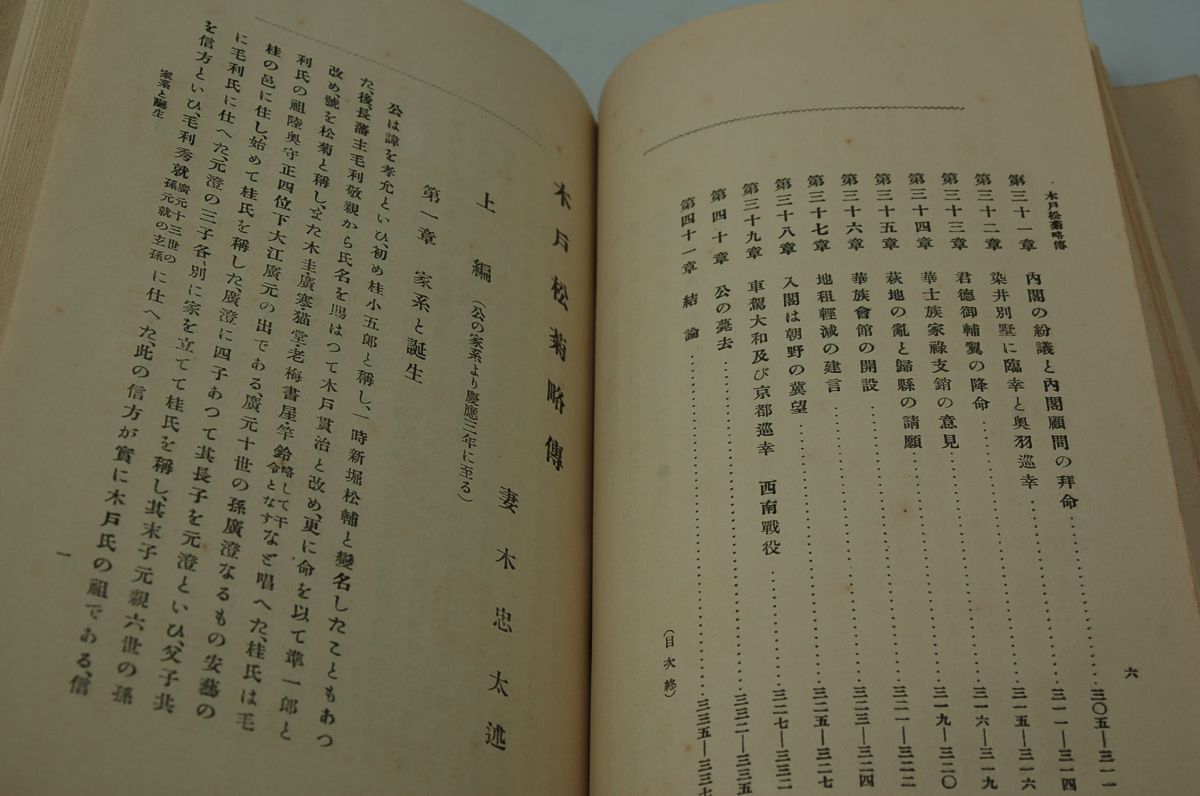 木戸松菊略傳
六
第三十一章 內閣の紛議と內閣顧問の拜命……三〇五—三一一
第三十二章 染井別墅に臨幸と奥羽巡幸……三一一—三一四
第三十三章 君德御輔翼の降命……三一五—三一六
第三十四章 華士族家祿支銷の意見……三一六—三一九
第三十五章 萩地の亂と歸縣の請願……三一九—三二〇
第三十六章 華族會館の開設……三二一—三二二
第三十七章 地租輕減の建言……三二三—三二四
第三十八章 入閣は朝野の冀望……三二五—三二七
第三十九章 車駕大和及び京都巡幸 西南戰役……三二七—三三二
第四十章 公の薨去……三三二—三三五
第四十一章 結論……三三五—三三七
(目次終)
木戸松菊略傳
妻木忠太述
上編 (公の家系より慶應三年に至る)
第一章 家系と誕生
公は諱を孝允といひ、初め桂小五郎と稱し、一時新堀松輔と變名したこともあつ
た、後、長藩主毛利敬親から氏名を賜はつて木戸貫治と改め、更に命を以て準一郎と
改め、號を松菊と稱し、また木圭・廣寒・猫堂・老梅書屋・竿鈴略して干令となすなど唱へた、桂氏は毛
利氏の祖陸奥守正四位下大江廣元の出である、廣元十世の孫廣澄なるもの安藝の
桂の邑に住し、始めて桂氏を稱した、廣澄に四子あつて其長子を元澄といひ、父子共
に毛利氏に仕へた、元澄の三子各〻別に家を立てて桂氏を稱し、其末子元親六世の孫
を信方といひ、毛利秀就廣元十三世の孫元就の玄孫に仕へた、此の信方が實に木戸氏の祖である、信
家系と誕生
一